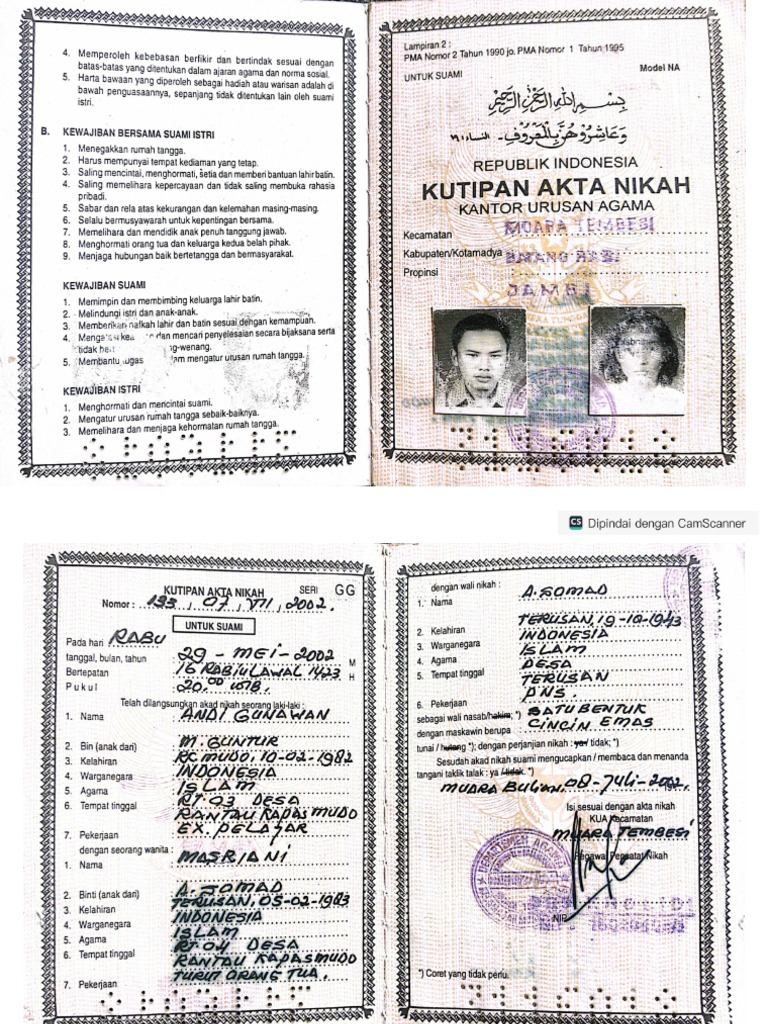 4. Memperoleh kebebasan berfikir dan bertindak sesuai dengan
batas-batas yang ditentukan dalam ajaran agama dan norma sosial.
5. Harta bawaan yang diperoleh sebagai hadiah atau warisan adalah di
bawah penguasaannya, sepanjang tidak ditentukan lain oleh suami
istri.
B. KEWAJIBAN BERSAMA SUAMI ISTRI
1. Menegakkan rumah tangga.
2. Harus mempunyai tempat kediaman yang tetap.
3. Saling mencintai, menghormati, setia dan memberi bantuan lahir batin.
4. Saling memelihara kepercayaan dan tidak saling membuka rahasia
pribadi.
5. Sabar dan rela atas kekurangan dan kelemahan masing-masing.
6. Selalu bermusyawarah untuk kepentingan bersama.
7. Memelihara dan mendidik anak penuh tanggung jawab.
8. Menghormati orang tua dan keluarga kedua belah pihak.
9. Menjaga hubungan baik bertetangga dan bermasyarakat.
KEWAJIBAN SUAMI
1. Memimpin dan membimbing keluarga lahir batin.
2. Melindungi istri dan anak-anak.
3. Memberikan nafkah lahir dan batin sesuai dengan kemampuan.
4. dan mencari penyelesaian secara bijaksana serta
tidak
5. Membantu tugas mengatur urusan rumah tangga.
KEWAJIBAN ISTRI
1. Menghormati dan mencintai suami.
2. Mengatur urusan rumah tangga sebaik-baiknya.
3. Memelihara dan menjaga kehormatan rumah tangga.
Lampiran 2 :
PMA Nomor 2 Tahun 1990 jo. PMA Nomor 1 Tahun 1995
UNTUK SUAMI Model NA
بِسْمِ اللهِ الرَّحْمٰنِ الرَّحِيْمِ
وَعَاشِرُوْهُنَّ بِالْمَعْرُوْفِ - النساء ١٩
REPUBLIK INDONESIA
KUTIPAN AKTA NIKAH
KANTOR URUSAN AGAMA
Kecamatan MOARA TEMBESI
Kabupaten/Kotamadya BATANG HARI
Propinsi JAMBI
CS Dipindai dengan CamScanner
KUTIPAN AKTA NIKAH SERI GG
Nomor : 135, 07, VII, 2002.
UNTUK SUAMI
Pada hari RABU
tanggal, bulan, tahun 29 - MEI - 2002 M
Bertepatan 16 RABIULAWAL 1423 H
Pukul 20.00 WIB.
Telah dilangsungkan akad nikah seorang laki-laki :
1. Nama ANDI GUNAWAN
2. Bin (anak dari) M. GUNTUR
3. Kelahiran RK MUDO, 10-02-1982
4. Warganegara INDONESIA
5. Agama ISLAM
6. Tempat tinggal RT.03 DESA
RANTAU KAPAS MUDO
7. Pekerjaan EX. PELAJAR
dengan seorang wanita :
1. Nama MASRIANI
2. Binti (anak dari) A. SOMAD
3. Kelahiran TERUSAN, 05-02-1983
4. Warganegara INDONESIA
5. Agama ISLAM
6. Tempat tinggal RT.04 DESA
RANTAU KAPAS MUDO
7. Pekerjaan TURUT ORANG TUA.
dengan wali nikah :
1. Nama A. SOMAD
2. Kelahiran TERUSAN, 19-10-1943
3. Warganegara INDONESIA
4. Agama ISLAM
5. Tempat tinggal DESA
TERUSAN
6. Pekerjaan PNS.
sebagai wali nasab/hakim; *) SATU BENTUK
dengan maskawin berupa CINCIN EMAS
tunai / hutang *); dengan perjanjian nikah : ya/ tidak; *)
Sesudah akad nikah suami mengucapkan / membaca dan menanda
tangani taklik talak : ya / tidak. *)
MUARA BULIAN, 08-JULI-2002.
Isi sesuai dengan akta nikah
KUA Kecamatan
MUARA TEMBESI
Pegawai Pencatat Nikah
NIP.
*) Coret yang tidak perlu.